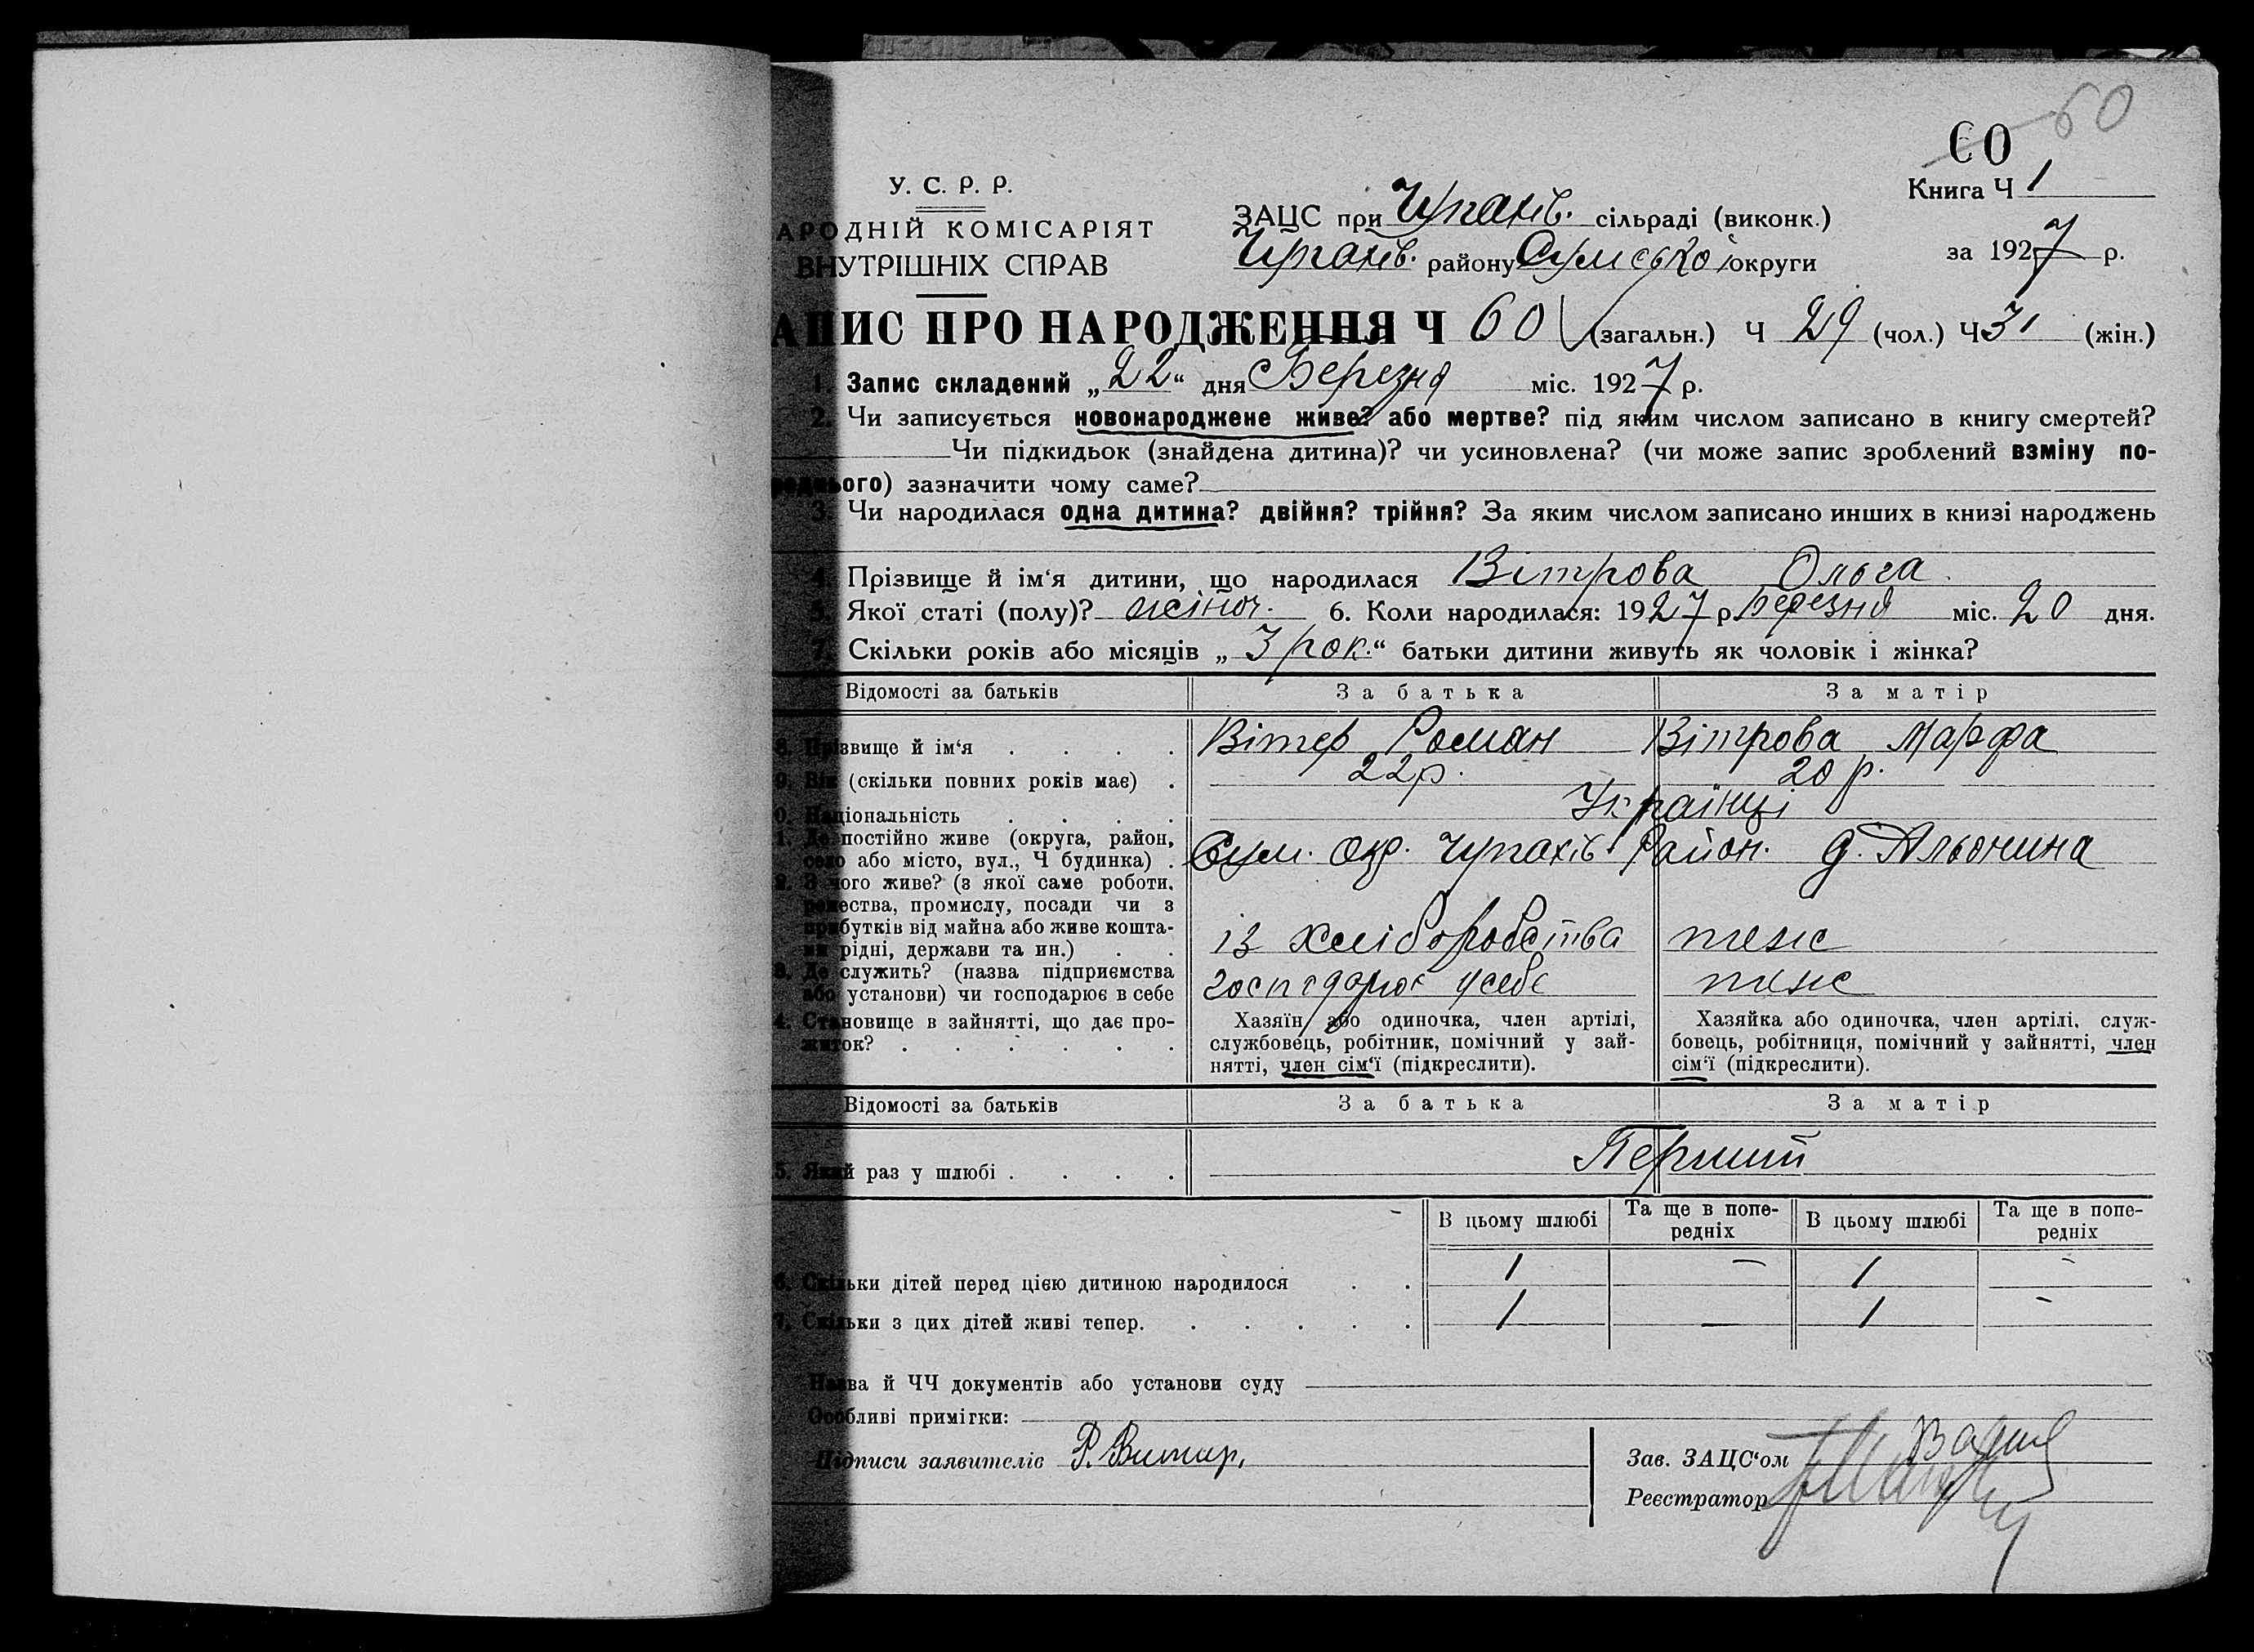 60
60
Книга Ч 1
за 1927 р.
У. С. Р. Р.
НАРОДНІЙ КОМІСАРІЯТ
ВНУТРІШНІХ СПРАВ
ЗАЦС при Чупахів. сільраді (виконк.)
Чупахів. району Сумської округи
ЗАПИС ПРО НАРОДЖЕННЯ Ч 60 (загальн.) Ч 29 (чол.) Ч 31 (жін.)
1. Запис складений „22“ дня Березня міс. 1927 р.
2. Чи записується новонароджене живе? або мертве? під яким числом записано в книгу смертей?
Чи підкидьок (знайдена дитина)? чи усиновлена? (чи може запис зроблений взміну по-
реднього) зазначити чому саме?
3. Чи народилася одна дитина? двійня? трійня? За яким числом записано инших в книзі народжень
4. Прізвище й ім‘я дитини, що народилася Вітрова Ольга.
5. Якої статі (полу)? жіноч. 6. Коли народилася: 1927 р. Березня міс. 20 дня.
7. Скільки років або місяців „3 рок.“ батьки дитини живуть як чоловік і жінка?
Відомості за батьків За батька За матір
8. Прізвище й ім‘я . . . . Вітер Роман Вітрова Марфа
9. Вік (скільки повних років має) . 22 р. 20 р.
10. Національність . . . . Українці
11. Де постійно живе (округа, район,
село або місто, вул., Ч будинка) . Сум. окр. Чупахів. Район. д. Альошина
12. З чого живе? (з якої саме роботи,
ремества, промислу, посади чи з
прибутків від майна або живе кошта-
ми рідні, держави та ин.) . . із хліборобства теж
13. Де служить? (назва підприємства
або установи) чи господарює в себе господарює у себе теж
14. Становище в зайнятті, що дає про-
житок? . . . . . .
Хазяїн або одиночка, член артілі,
службовець, робітник, помічний у зай-
нятті, член сім‘ї (підкреслити).
Хазяйка або одиночка, член артілі, служ-
бовець, робітниця, помічний у зайнятті, член
сім‘ї (підкреслити).
Відомості за батьків За батька За матір
15. Який раз у шлюбі . . . . Перший
В цьому шлюбі Та ще в попе-редніх В цьому шлюбі Та ще в попе-редніх
16. Скільки дітей перед цією дитиною народилося . . 1 – 1 -
17. Скільки з цих дітей живі тепер. . . . . . 1 – 1 -
Назва й ЧЧ документів або установи суду
Особливі примітки:
Підписи заявителів Р. Витир,
Зав. ЗАЦС‘ом
Реєстратор